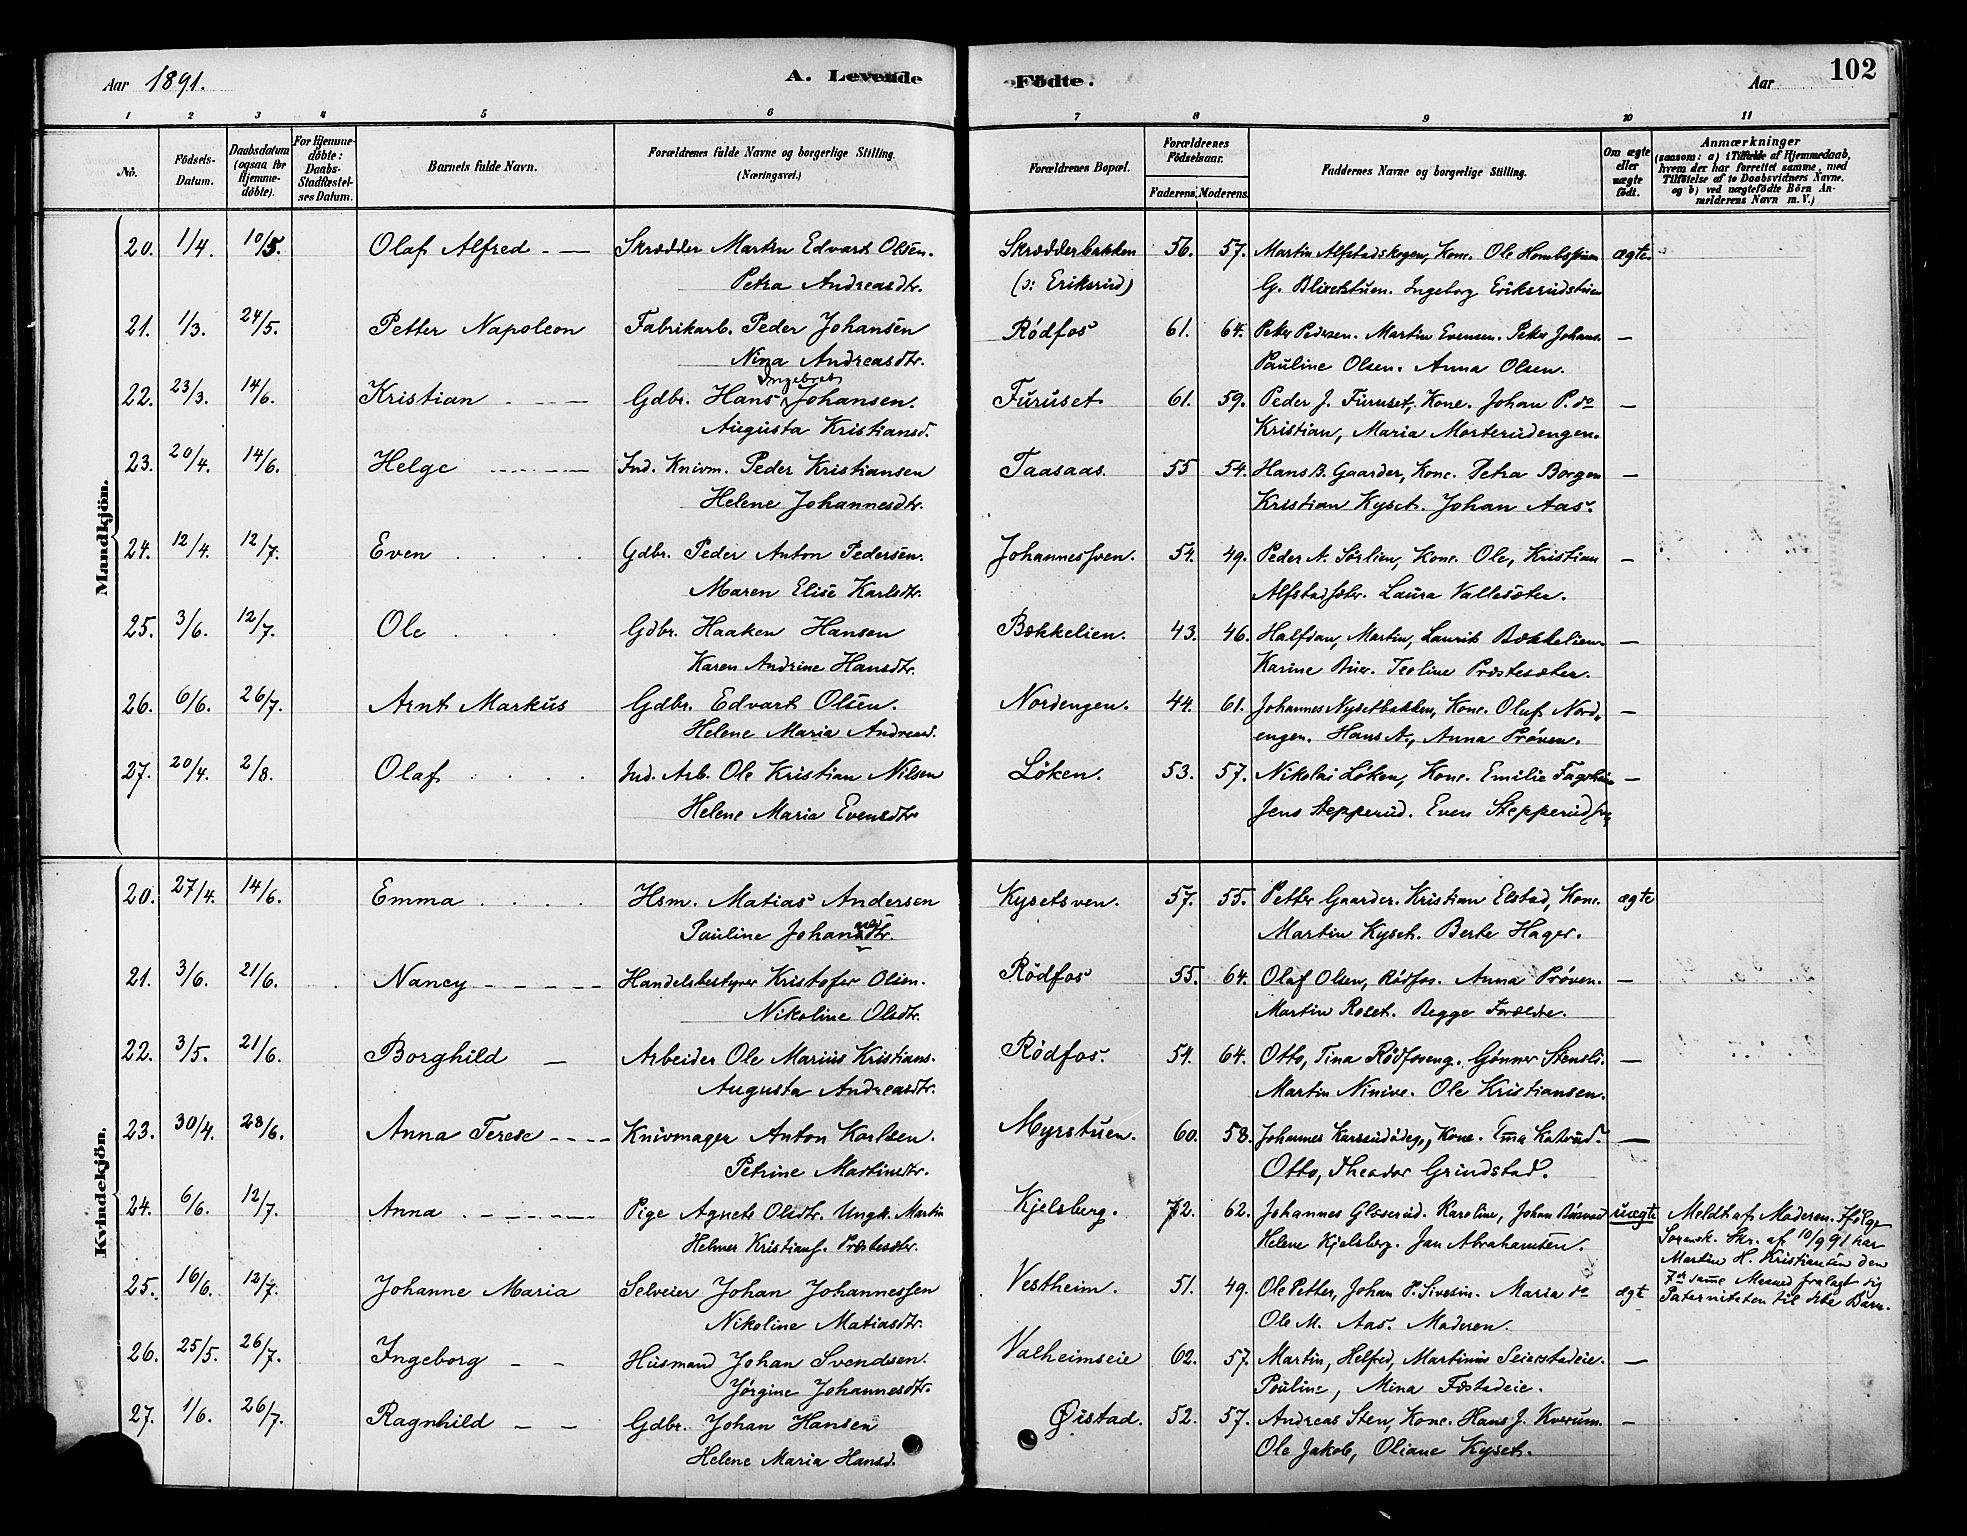 Aar 1891. A. Levende Födte. Aar 102
1 2 3 4 5 6 7 8 9 10 11
No. Födsels-Datum. Daabsdatum (ogsaa for Hjemme-døbte). For Hjemme-døbte: Daabs-Stadfæstel-ses Datum. Barnets fulde Navn. Forældrenes fulde Navne og borgerlige Stilling. (Næringsvei.) Forældrenes Bopæl. Forældrenes Födselsaar. Faderens. Moderens. Faddernes Navne og borgerlige Stilling. Om ægte eller uægte født. Anmærkninger (saasom: a) i Tilfælde af Hjemmedaab, hvem der har forrettet samme, med Tilføielse af to Daabsvidners Navne. og b) ved uægtefödte Börn Anmelderens Navn m. V.)
Mandkjön.
20. 1/4. 10/5. Olaf Alfred Skrædder Martin Edvart Olsen. Skrædderbakken 56. 57. Martin Alfstadskogen, Kone. Ole Hombstuen ægte.
Petra Andreasdtr. (ɔ: Eriksrud) G. Blixetstuen. Ingeborg Eriksrudstuen
21. 1/3. 24/5. Petter Napoleon Fabrikarb. Peder Johansen Rödfos 61. 64. Peter Pedersen. Martin Evensen. Peter Johans. —
Nina Andreasdtr. Pauline Olsen. Anna Olsen.
22. 23/3. 14/6. Kristian Gdbr. Hans Ingebret Johansen. Furuset 61. 59. Peder J. Furuset, Kone. Johan P. do —
Augusta Kristiansd. Kristian, Maria Morterudengen.
23. 20/4. 14/6. Helge Ind. Knivm. Peder Kristiansen Taasaas. 55 54. Hans B. Gaarder, Kone. Petra Borgen —
Helene Johannesdtr. Kristian Kyset. Johan Aas.
24. 12/4. 12/7. Even Gdbr. Peder Anton Pedersen. Johannessven. 54. 49. Peder A. Sørlien, Kone. Ole, Kristian —
Maren Elise Karlsdtr. Alfstadsæter. Laura Vallesæter.
25. 3/6. 12/7. Ole Gdbr. Haaken Hansen Bækkelien. 43. 46. Halfdan, Martin, Laurits Bækkelien. —
Karen Andrine Hansdtr. Karine Buer. Teoline Præstesæter.
26. 6/6. 26/7. Arnt Markus Gdbr. Edvart Olsen. Nordengen. 44. 61. Johannes Nysetbakken, Kone. Oluf Nord- —
Helene Maria Andreasd. engen. Hans A., Anna Prøven.
27. 20/4. 2/8. Olaf Ind. Arb. Ole Kristian Nilsen Løken. 53. 57. Nikolai Løken, Kone. Emilie —
Helene Maria Evensdtr Jens Stepperud. Even
Kvindekjön.
20. 27/4. 14/6. Emma Hsm. Matias Andersen Kysetsven. 57. 55. Petter Gaarder. Kristian Elstad, Kone. ægte
Pauline Martin Kyset. Berte Hager.
21. 3/6. 21/6. Nancy Handelsbestyrer Kristofer Olsen. Rödfos 55. 64. Olaf Olsen, Rödfos. Anna Prøven. —
Nikoline Olsdtr. Martin Roset. Begge Forældre.
22. 3/5. 21/6. Borghild — Arbeider Ole Marius Kristians. Rödfos. 54. 64. Otto, Tina Rödfoseng. Gønner Stensli. —
Augusta Andreasdtr. Martin Ninive. Ole Kristiansen.
23. 30/4. 28/6. Anna Terese Knivmager Anton Karlsen. Myrstuen. 60. 58. Johannes Karsrudødeg., Kone. Ema Katrud. —
Petrine Martinsdtr. Otto, Theodor Grindstad.
24. 6/6. 12/7. Anna Pige Agnete Olsdtr. Ungk. Martin Kjelsberg. 72. 62. Johannes Glæserud. Karoline, Johan uægte Meldt af Moderen. Ifølge
Helmer Kristians. Præstesæter. Helene Kjelsberg. Jan Abrahamsen. Sorensk. Skr. af 10/9 91 har
Martin H. Kristiansen den
25. 16/6. 12/7. Johanne Maria Selveier Johan Johannessen Vestheim. 51. 49. Ole Petter, Johan P. Sivesin. Maria do ægt 7de samme Maaned fralagt sig
Nikoline Matiasdtr. Ole M. Aas. Moderen. Paterniteten til dette Barn.
26. 25/5. 26/7. Ingeborg Husmand Johan Svendsen. Valheimseie 62. 57. Martin, Helfred, Martinus Seierstadeie. —
Jørgine Johannesdtr. Pouline, Mina Fæstadeie.
27. 1/6. 26/7. Ragnhild Gdbr. Johan Hansen Øistad. 52. 57. Andreas Sten, Kone. Hans J. Kverum. —
Helene Maria Hansd. Ole Jakob, Oliane Kyset.